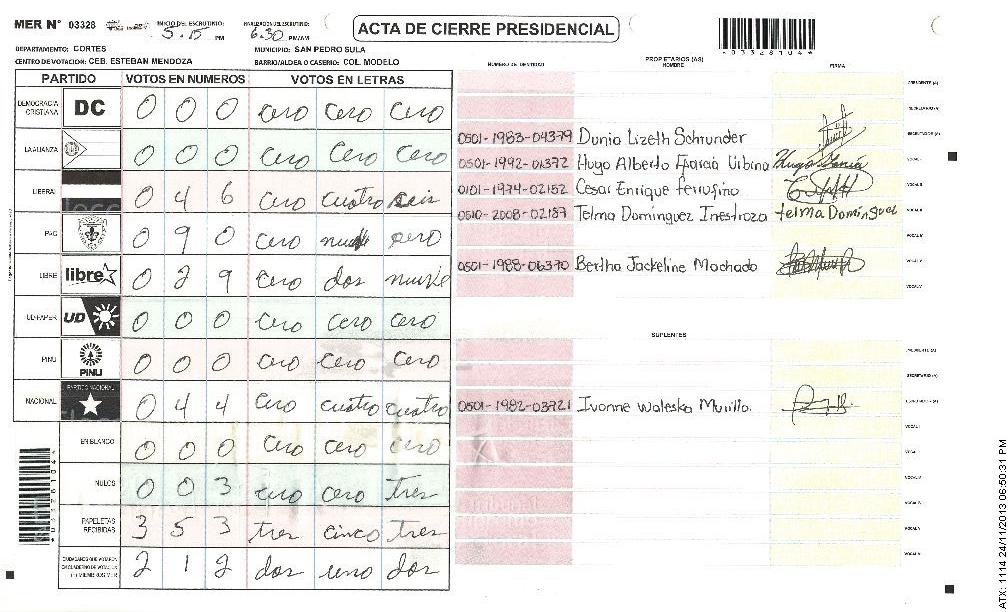 MER N° 03328
INICIO DEL ESCRUTINIO: 5.15 PM
FINALIZACION DEL ESCRUTINIO: 6.30 PM/AM
ACTA DE CIERRE PRESIDENCIAL
DEPARTAMENTO: CORTES
MUNICIPIO: SAN PEDRO SULA
CENTRO DE VOTACION: CEB. ESTEBAN MENDOZA
BARRIO/ALDEA O CASERIO: COL. MODELO
PARTIDO VOTOS EN NUMEROS VOTOS EN LETRAS
DEMOCRACIA CRISTIANA DC 0 0 0 cero cero cero
LA ALIANZA 0 0 0 cero cero cero
LIBERAL 0 4 6 cero cuatro seis
PAC 0 9 0 cero nueve cero
LIBRE libre 0 2 9 cero dos nueve
UD/FAPER UD 0 0 0 cero cero cero
PINU PINU 0 0 0 cero cero cero
NACIONAL PARTIDO NACIONAL 0 4 4 cero cuatro cuatro
EN BLANCO 0 0 0 cero cero cero
NULOS 0 0 3 cero cero tres
PAPELETAS RECIBIDAS 3 5 3 tres cinco tres
CIUDADANOS QUE VOTARON 2 1 2 dos uno dos
PROPIETARIOS (AS)
NUMERO DE IDENTIDAD NOMBRE FIRMA
PRESIDENTE (A)
SECRETARIO (A)
0501-1983-04379 Dunia Lizeth Schrunder ESCRUTADOR (A)
0501-1992-01372 Hugo Alberto Urbina VOCAL I
0101-1974-02152 Cesar Enrique Ferrufino VOCAL II
0510-2008-02187 Telma Dominguez Inestroza telma Dominguez VOCAL III
VOCAL IV
0501-1988-06370 Bertha Jackeline Machado VOCAL V
SUPLENTES
PRESIDENTE (A)
SECRETARIO (A)
0501-1982-03721 Ivonne Waleska Murillo ESCRUTADOR (A)
VOCAL I
*0328104*
ATX: 1114 24/11/2013 06:50:31 PM